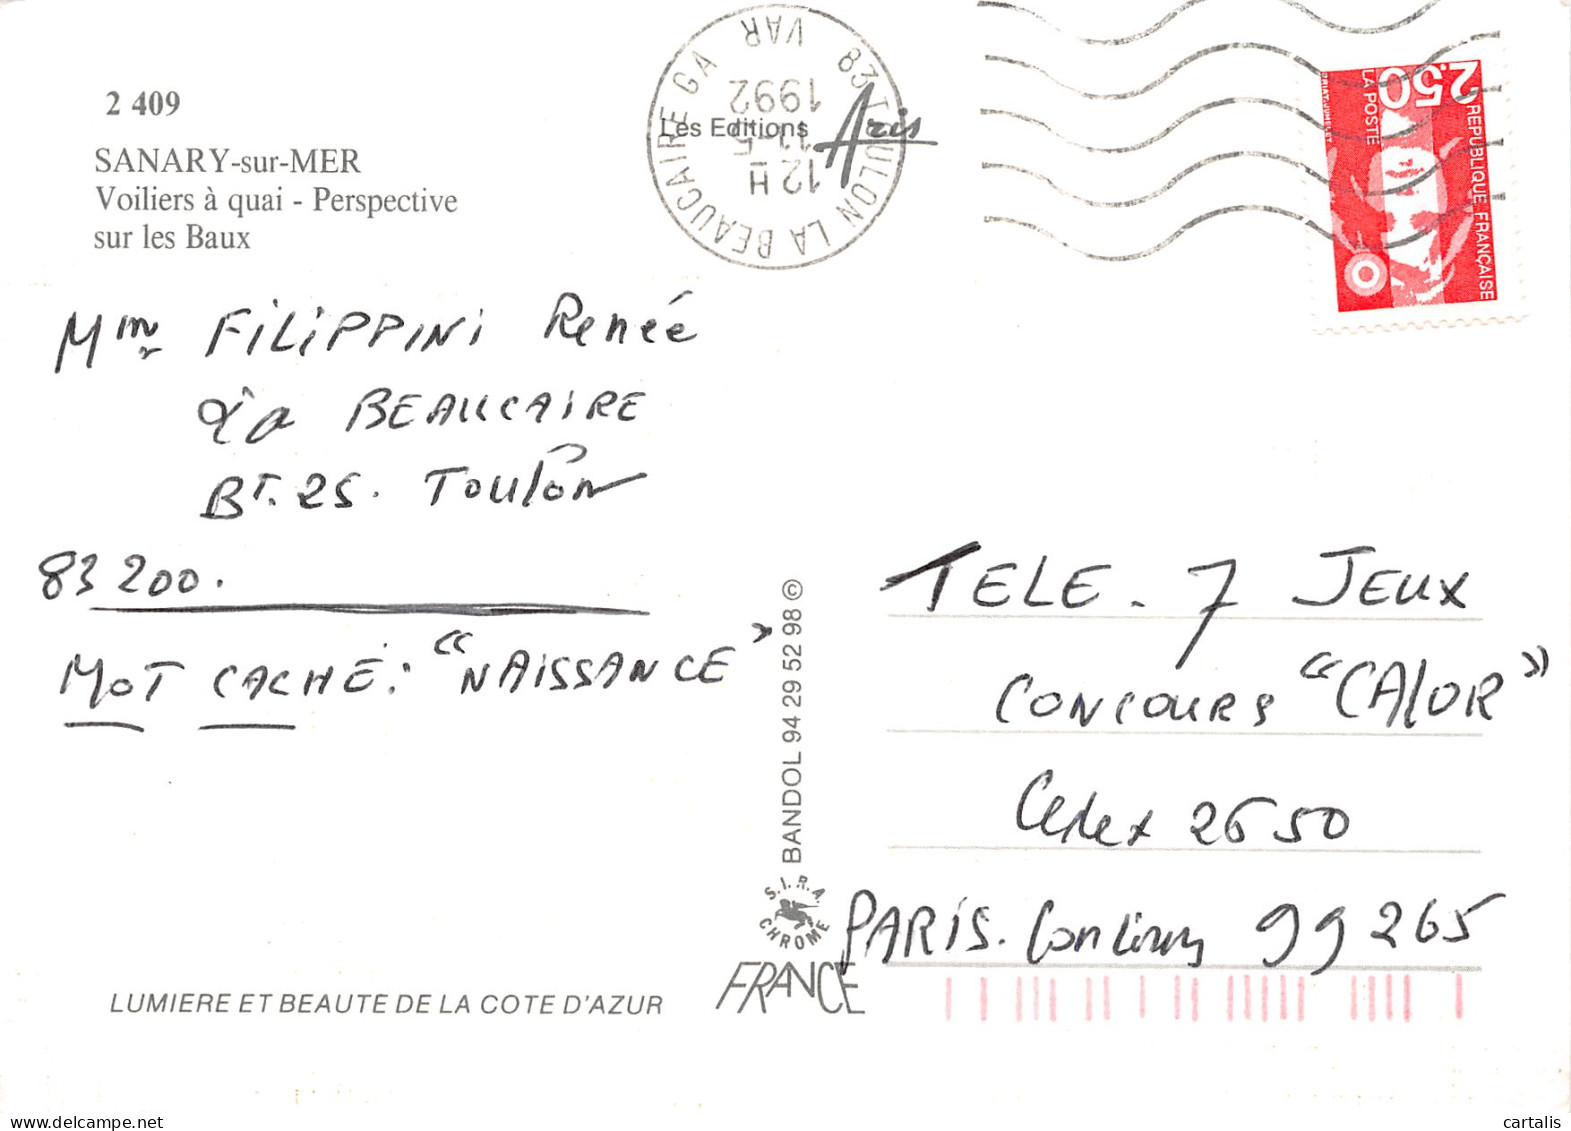 2 409
SANARY-sur-MER
Voiliers à quai - Perspective
sur les Baux
Les Editions Aris
83 TOULON LA BEAUCAIRE GA VAR
12 H
12-5
1992
2,50
REPUBLIQUE FRANÇAISE
LA POSTE
BRIAT-JUMELET
Mme FILIPPINI Renée
La BEAUCAIRE
BT. 25. Toulon
83 200.
MOT CACHÉ: "NAISSANCE"
BANDOL 94 29 52 98 ©
S.I.R.A.
CHROME
FRANCE
TELE. 7 JEUX
CONCOURS "CALOR"
Cedex 2650
PARIS. Concours 99 265
LUMIERE ET BEAUTE DE LA COTE D'AZUR
cartalis